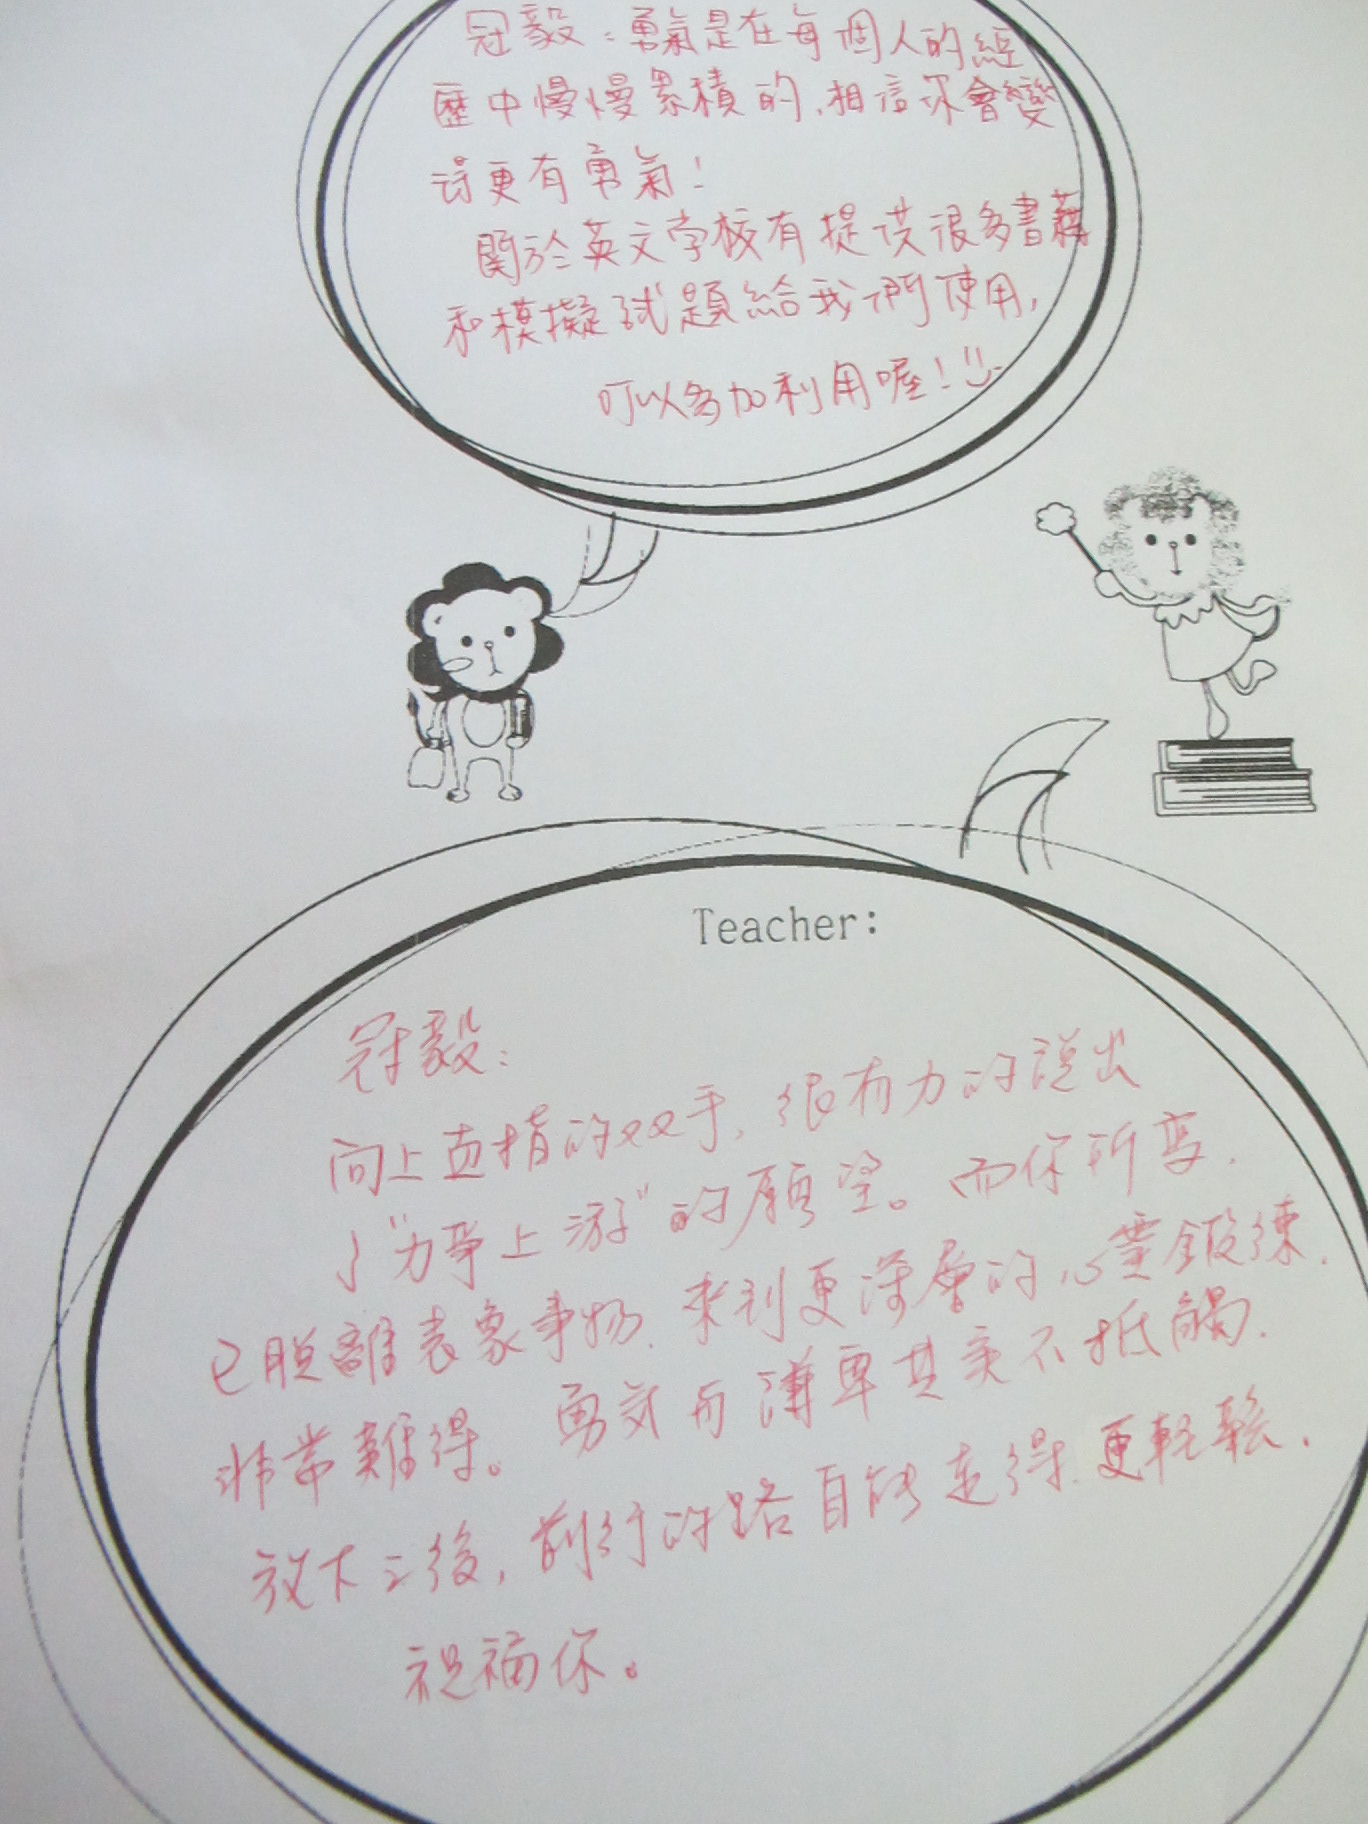 冠毅：勇氣是在每個人的經
歷中慢慢累積的，相信你會變
得更有勇氣！
關於英文學校有提供很多書籍
和模擬試題給我們使用，
可以多加利用喔！
Teacher:
冠毅：
向上直指的双手，很有力的說出
了"力爭上游"的願望。而你所要，
已脫離表象事物，來到更深層的心靈鍛鍊，
非常難得。勇氣與謙卑其實不抵觸，
放下之後，前行的路自能走得更輕鬆，
祝福你。